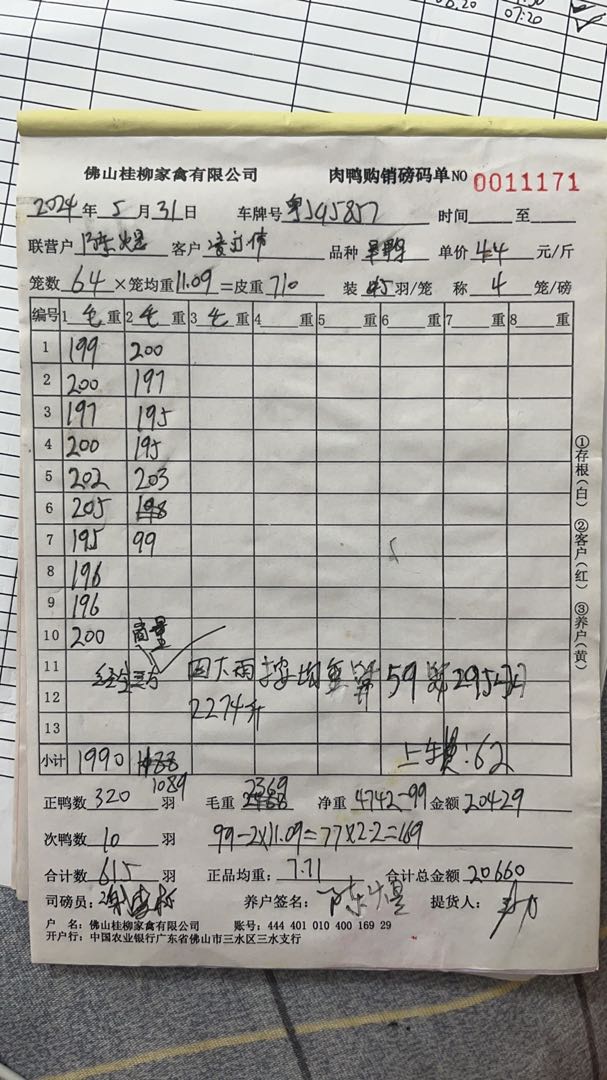 08.20
07:20
佛山桂柳家禽有限公司 肉鸭购销磅码单NO 0011171
2024年 5 月 31 日 车牌号 粤J95857 时间 至
联营户 陈煜 客户 品种 单价 4.4 元/斤
笼数 64 ×笼均重 11.09 =皮重 710 装 羽/笼 称 4 笼/磅
编号 1 毛 重 2 毛 重 3 毛 重 4 重 5 重 6 重 7 重 8 重
1 199 200
2 200 197
3 197 195
4 200 195
5 202 203
6 205 198
7 195 99
8 196
9 196
10 200 商量
11 因大雨 按均重算 59 算 295
12 2274斤
13
小计 1990 1089 上车费:62
正鸭数 320 羽 毛重 2369 净重 4742-99 金额 20429
次鸭数 10 羽 99-2×11.09=77×2.2=169
合计数 615 羽 正品均重: 7.71 合计总金额 20660
司磅员: 养户签名: 陈煜 提货人:
户 名: 佛山桂柳家禽有限公司 账号: 444 401 010 400 169 29
开户行: 中国农业银行广东省佛山市三水区三水支行
①存根(白) ②客户(红) ③养户(黄)